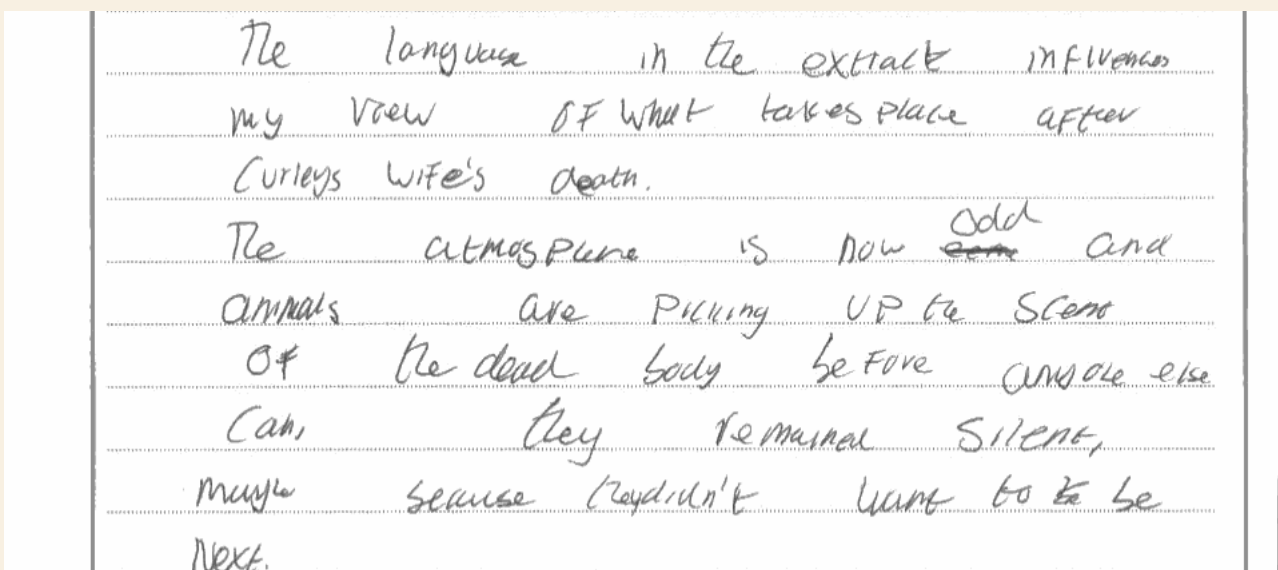 The language in the extract influences
my view of what takes place after
Curleys wife's death.
The atmosphere is now odd and
animals are picking up the scent
of the dead body before anyone else
can, they remained silent,
maybe because they didn't want to be
Next.